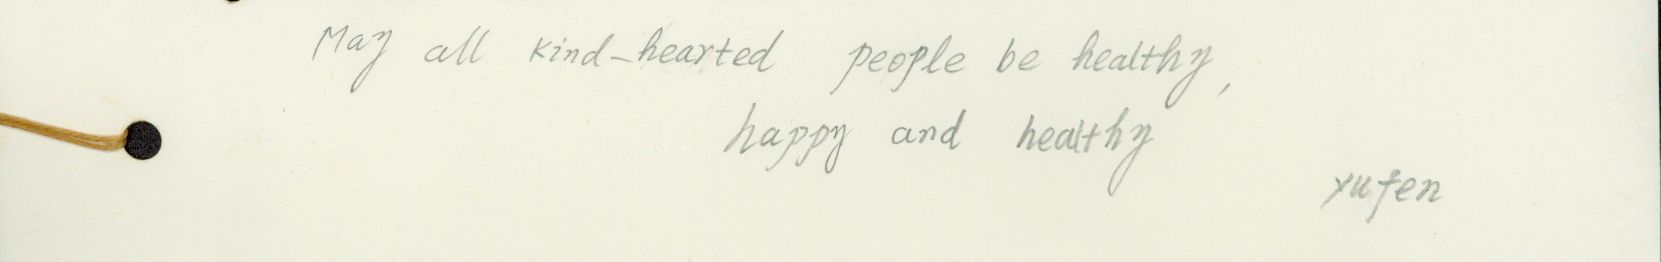 May all kind-hearted people be healthy,
happy and healthy
yufen